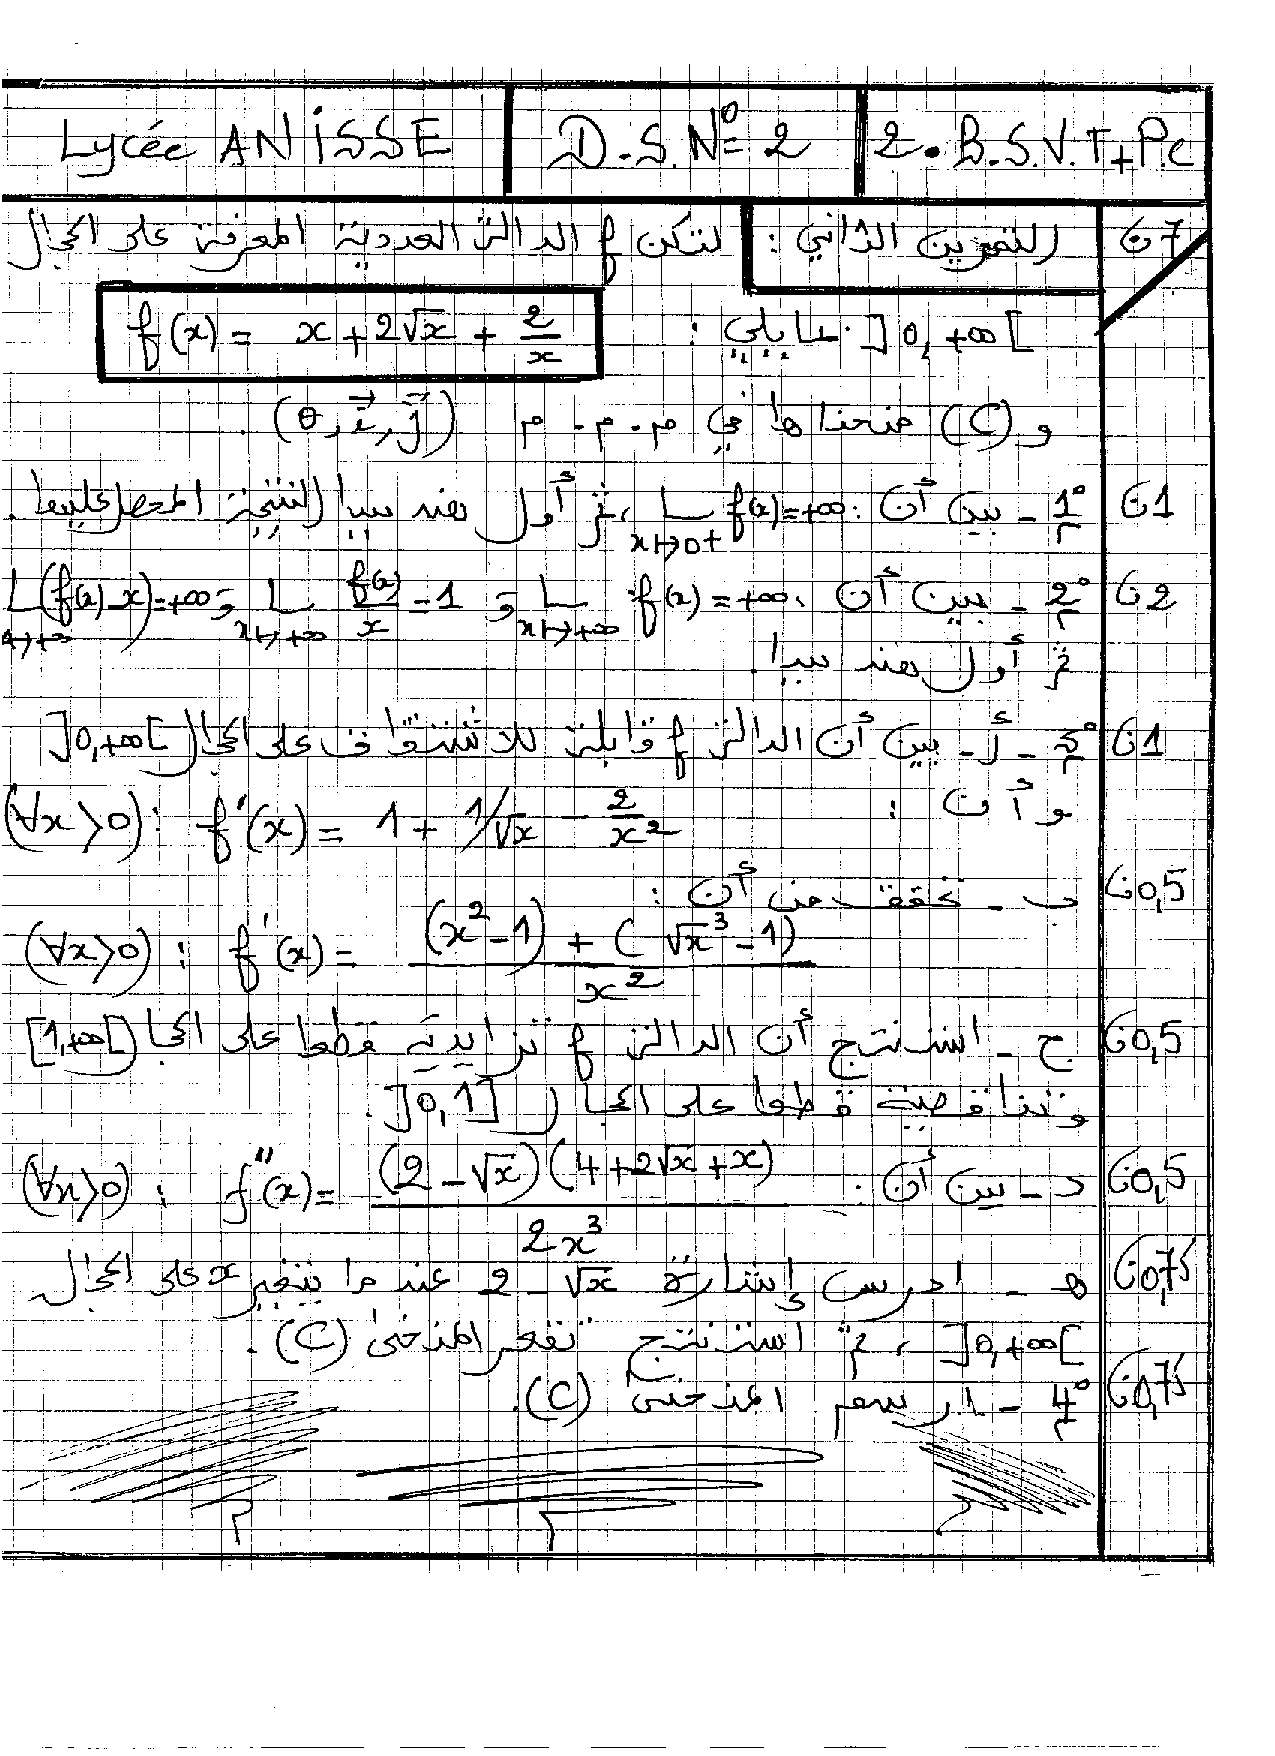 Lycée ANISSE D.S.N° 2 2.B.S.V.T+P.C
7ن التمرين الثاني : لتكن f الدالة العددية المعرفة على المجال
]0,+∞[ بمايلي : f(x) = x + 2√x + 2/x
و (C) منحناها في م.م.م (O, i, j).
1ن 1° - بين أن : L f(x)=+∞ x↦0+ ، ثم أول هندسيا النتيجة المحصل عليها.
2ن 2° - بين أن L f(x) = +∞ x↦+∞ و L f(x)/x = 1 x↦+∞ و L (f(x)-x)=+∞ x↦+∞
ثم أول هندسيا.
1ن 3° - أ - بين أن الدالة f قابلة للاشتقاق على المجال ]0,+∞[
و أن : (∀x>0) : f'(x) = 1 + 1/√x - 2/x²
0,5ن ب - تحقق من أن :
(∀x>0) : f'(x) = ((x²-1) + (√x³-1))/x²
0,5ن ج - استنتج أن الدالة f تزايدية قطعا على المجال [1,+∞[
وتناقصية قطعا على المجال ]0,1].
0,5ن د - بين أن : (∀x>0) : f''(x) = (2-√x)(4+2√x+x)/2x³
0,75ن هـ - ادرس إشارة 2 - √x عندما يتغير x على المجال
]0,+∞[ ، ثم استنتج تقعر المنحنى (C).
0,75ن 4° - ارسم المنحنى (C).